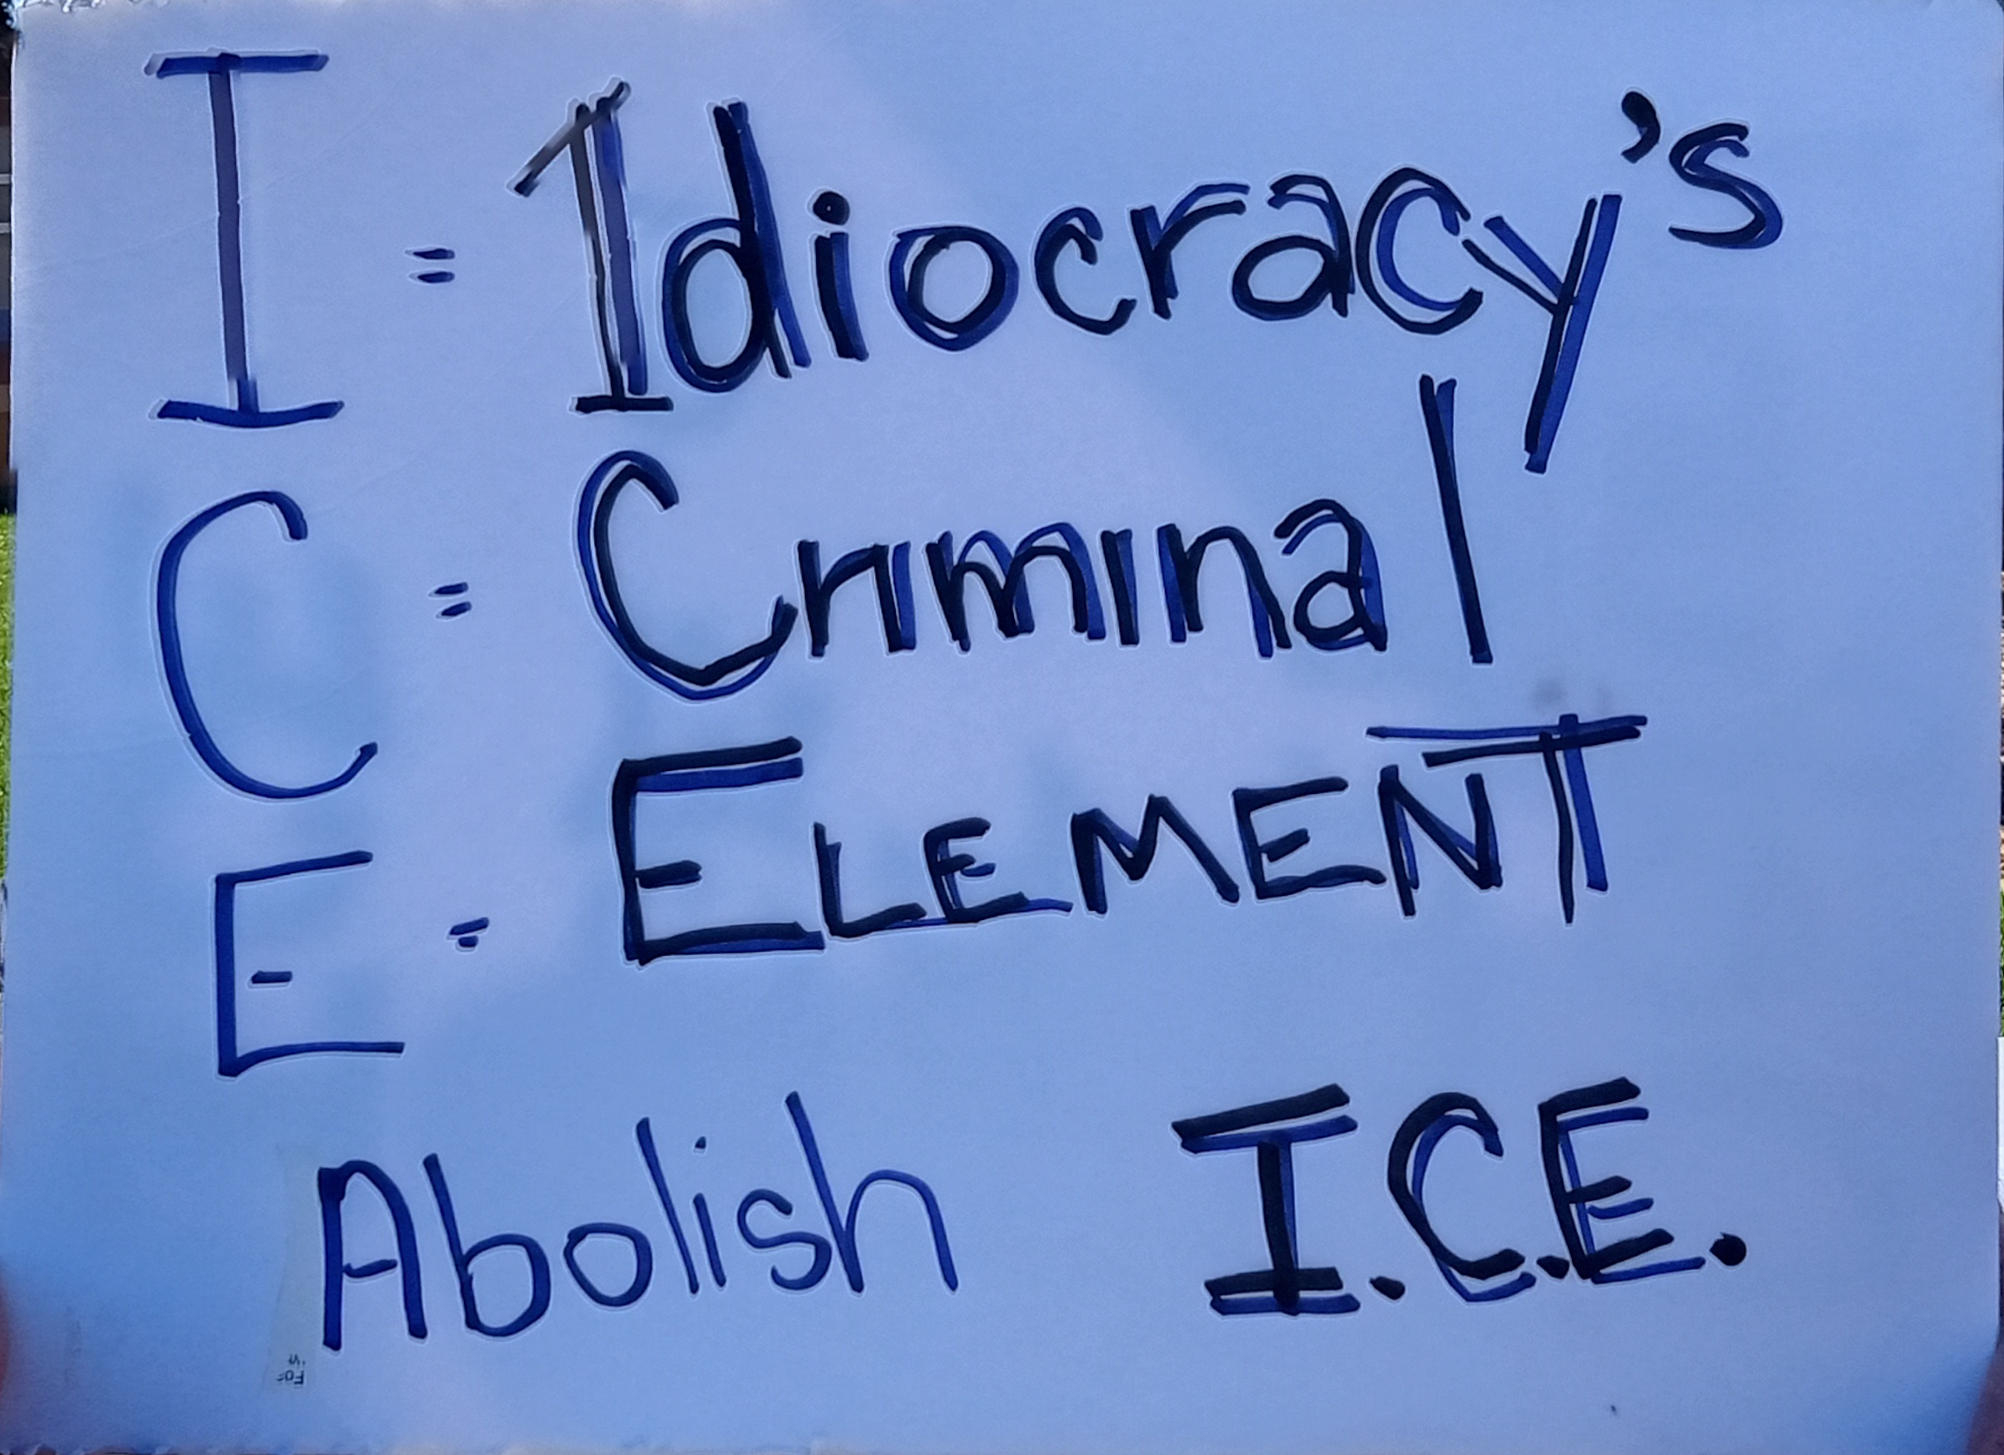 I = Idiocracy's
C = Criminal
E = ELEMENT
Abolish I.C.E.